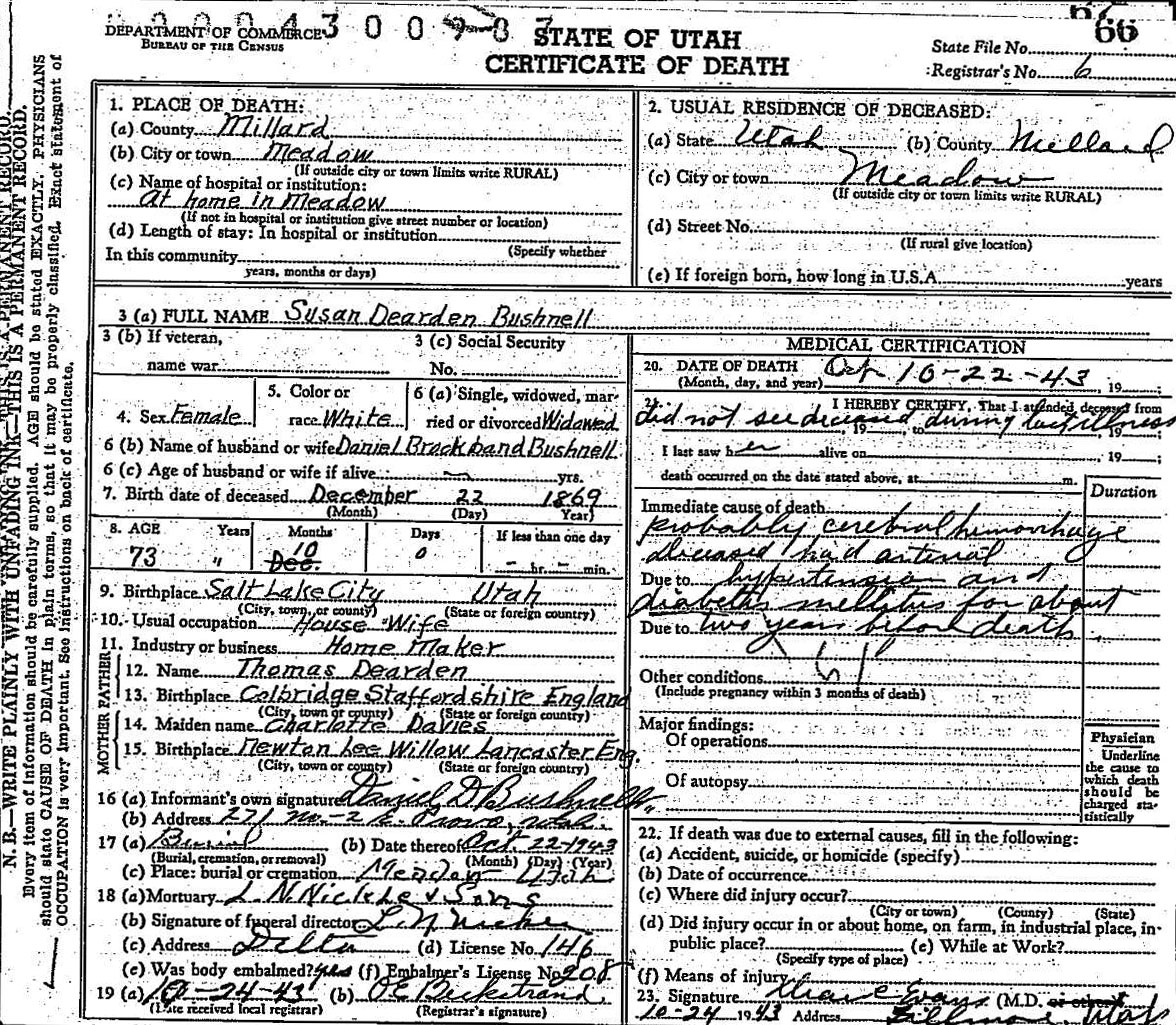 DEPARTMENT OF COMMERCE
BUREAU OF THE CENSUS
STATE OF UTAH
CERTIFICATE OF DEATH
66
State File No.
Registrar's No. 6
N. B.—WRITE PLAINLY WITH UNFADING INK—THIS IS A PERMANENT RECORD.
Every item of information should be carefully supplied. AGE should be stated EXACTLY. PHYSICIANS
should state CAUSE OF DEATH in plain terms, so that it may be properly classified. Exact statement of
OCCUPATION is very important. See instructions on back of certificate.
1. PLACE OF DEATH:
(a) County Millard
(b) City or town Meadow
(If outside city or town limits write RURAL)
(c) Name of hospital or institution:
At home in Meadow
(If not in hospital or institution give street number or location)
(d) Length of stay: In hospital or institution
(Specify whether
In this community
years, months or days)
2. USUAL RESIDENCE OF DECEASED:
(a) State Utah (b) County Millard
(c) City or town Meadow
(If outside city or town limits write RURAL)
(d) Street No.
(If rural give location)
(e) If foreign born, how long in U.S.A. years
3 (a) FULL NAME Susan Dearden Bushnell
3 (b) If veteran, 3 (c) Social Security
name war No.
4. Sex Female 5. Color or race White 6 (a) Single, widowed, married or divorced Widowed
6 (b) Name of husband or wife Daniel Brockband Bushnell
6 (c) Age of husband or wife if alive — yrs.
7. Birth date of deceased December 22 1869
(Month) (Day) Year)
8. AGE Years Months Days If less than one day
73 " 10 Dec. 0 - hr. - min.
9. Birthplace Salt Lake City Utah
(City, town, or county) (State or foreign country)
10. Usual occupation House Wife
11. Industry or business Home Maker
FATHER
12. Name Thomas Dearden
13. Birthplace Colbridge Staffordshire England
(City, town or county) (State or foreign country)
MOTHER
14. Maiden name Charlotte Davies
15. Birthplace Newton Lee Willow Lancaster Eng.
(City, town or county) (State or foreign country)
16 (a) Informant's own signature Daniel D Bushnell
(b) Address 271 No.-2 E. Provo, Utah.
17 (a) Burial (b) Date thereof Oct. 22-1943
(Burial, cremation, or removal) (Month) (Day) (Year)
(c) Place: burial or cremation Meadow Utah
18 (a) Mortuary L. N. Nickle & Sons
(b) Signature of funeral director L. N.
(c) Address Delta (d) License No. 146
(e) Was body embalmed? yes (f) Embalmer's License No 208
19 (a) 10-24-43 (b) O E Beckstrand.
(Date received local registrar) (Registrar's signature)
MEDICAL CERTIFICATION
20. DATE OF DEATH 10-22-43, 19 ;
(Month, day, and year)
21. I HEREBY CERTIFY, That I attended deceased from
did not see deceased 19 , to during last illness 19 ;
I last saw her alive on , 19 ;
death occurred on the date stated above, at m.
Duration
Immediate cause of death
probably cerebral hemorrhage
deceased had arterial
Due to hypertension and
diabetes mellitus for about
Due to two years before death.
61
Other conditions
(Include pregnancy within 3 months of death)
Major findings:
Of operations
Of autopsy
Physician
Underline
the cause to
which death
should be
charged sta-
tistically
22. If death was due to external causes, fill in the following:
(a) Accident, suicide, or homicide (specify)
(b) Date of occurrence
(c) Where did injury occur?
(City or town) (County) (State)
(d) Did injury occur in or about home, on farm, in industrial place, in
public place? (e) While at Work?
(Specify type of place)
(f) Means of injury
23. Signature Evans (M.D. or other)
10-24 1943 Address Fillmore, Utah